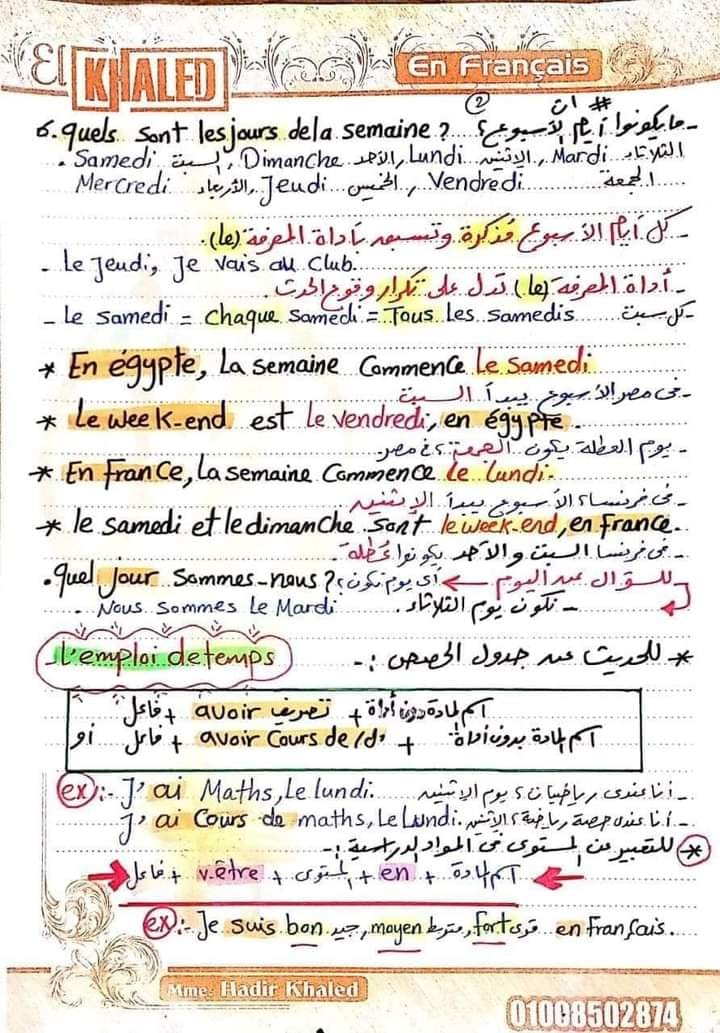 El KHALED
En Français
6. quels sont les jours de la semaine? ما يكونوا أيام الأسبوع؟
. Samedi السبت, Dimanche الأحد, Lundi الإثنين, Mardi الثلاثاء
Mercredi الأربعاء, Jeudi الخميس, Vendredi الجمعة
- كل أيام الأسبوع مذكرة وتسبق بأداة المعرفة (le).
- Le Jeudi, Je vais au Club.
- أداة المعرفة (le) تدل على تكرار وقوع الحدث.
- Le samedi = chaque samedi = Tous les samedis - كل سبت
* En égypte, La semaine Commence Le samedi
فى مصر الأسبوع يبدأ السبت
* Le week-end est le vendredi, en égypte.
- يوم العطلة يكون الجمعة فى مصر
* En France, la semaine Commence le lundi.
- فى فرنسا الأسبوع يبدأ الإثنين
* le samedi et le dimanche sont le week-end, en france.
- فى فرنسا السبت والأحد يكونوا عطلة
. Quel jour sommes-nous? أى يوم نكون؟ ← للسؤال عن اليوم
. Nous sommes le Mardi - نكون يوم الثلاثاء.
* للحديث عن جدول الحصص :-
L'emploi de temps
فاعل + تصريف avoir + اسم المادة بدون أداة
أو فاعل + avoir Cours de/d' + اسم المادة بدون أداة
ex:- J'ai Maths, Le lundi. - أنا عندى رياضيات يوم الإثنين
J'ai Cours de maths, Le Lundi. - أنا عندى حصة رياضة الإثنين
* للتعبير عن المستوى فى المواد الدراسية :-
فاعل + v.être + المستوى + en + اسم المادة
ex:- Je suis bon جيد, moyen متوسط, fort قوى en Français.
Mme: Hadir Khaled
01008502874